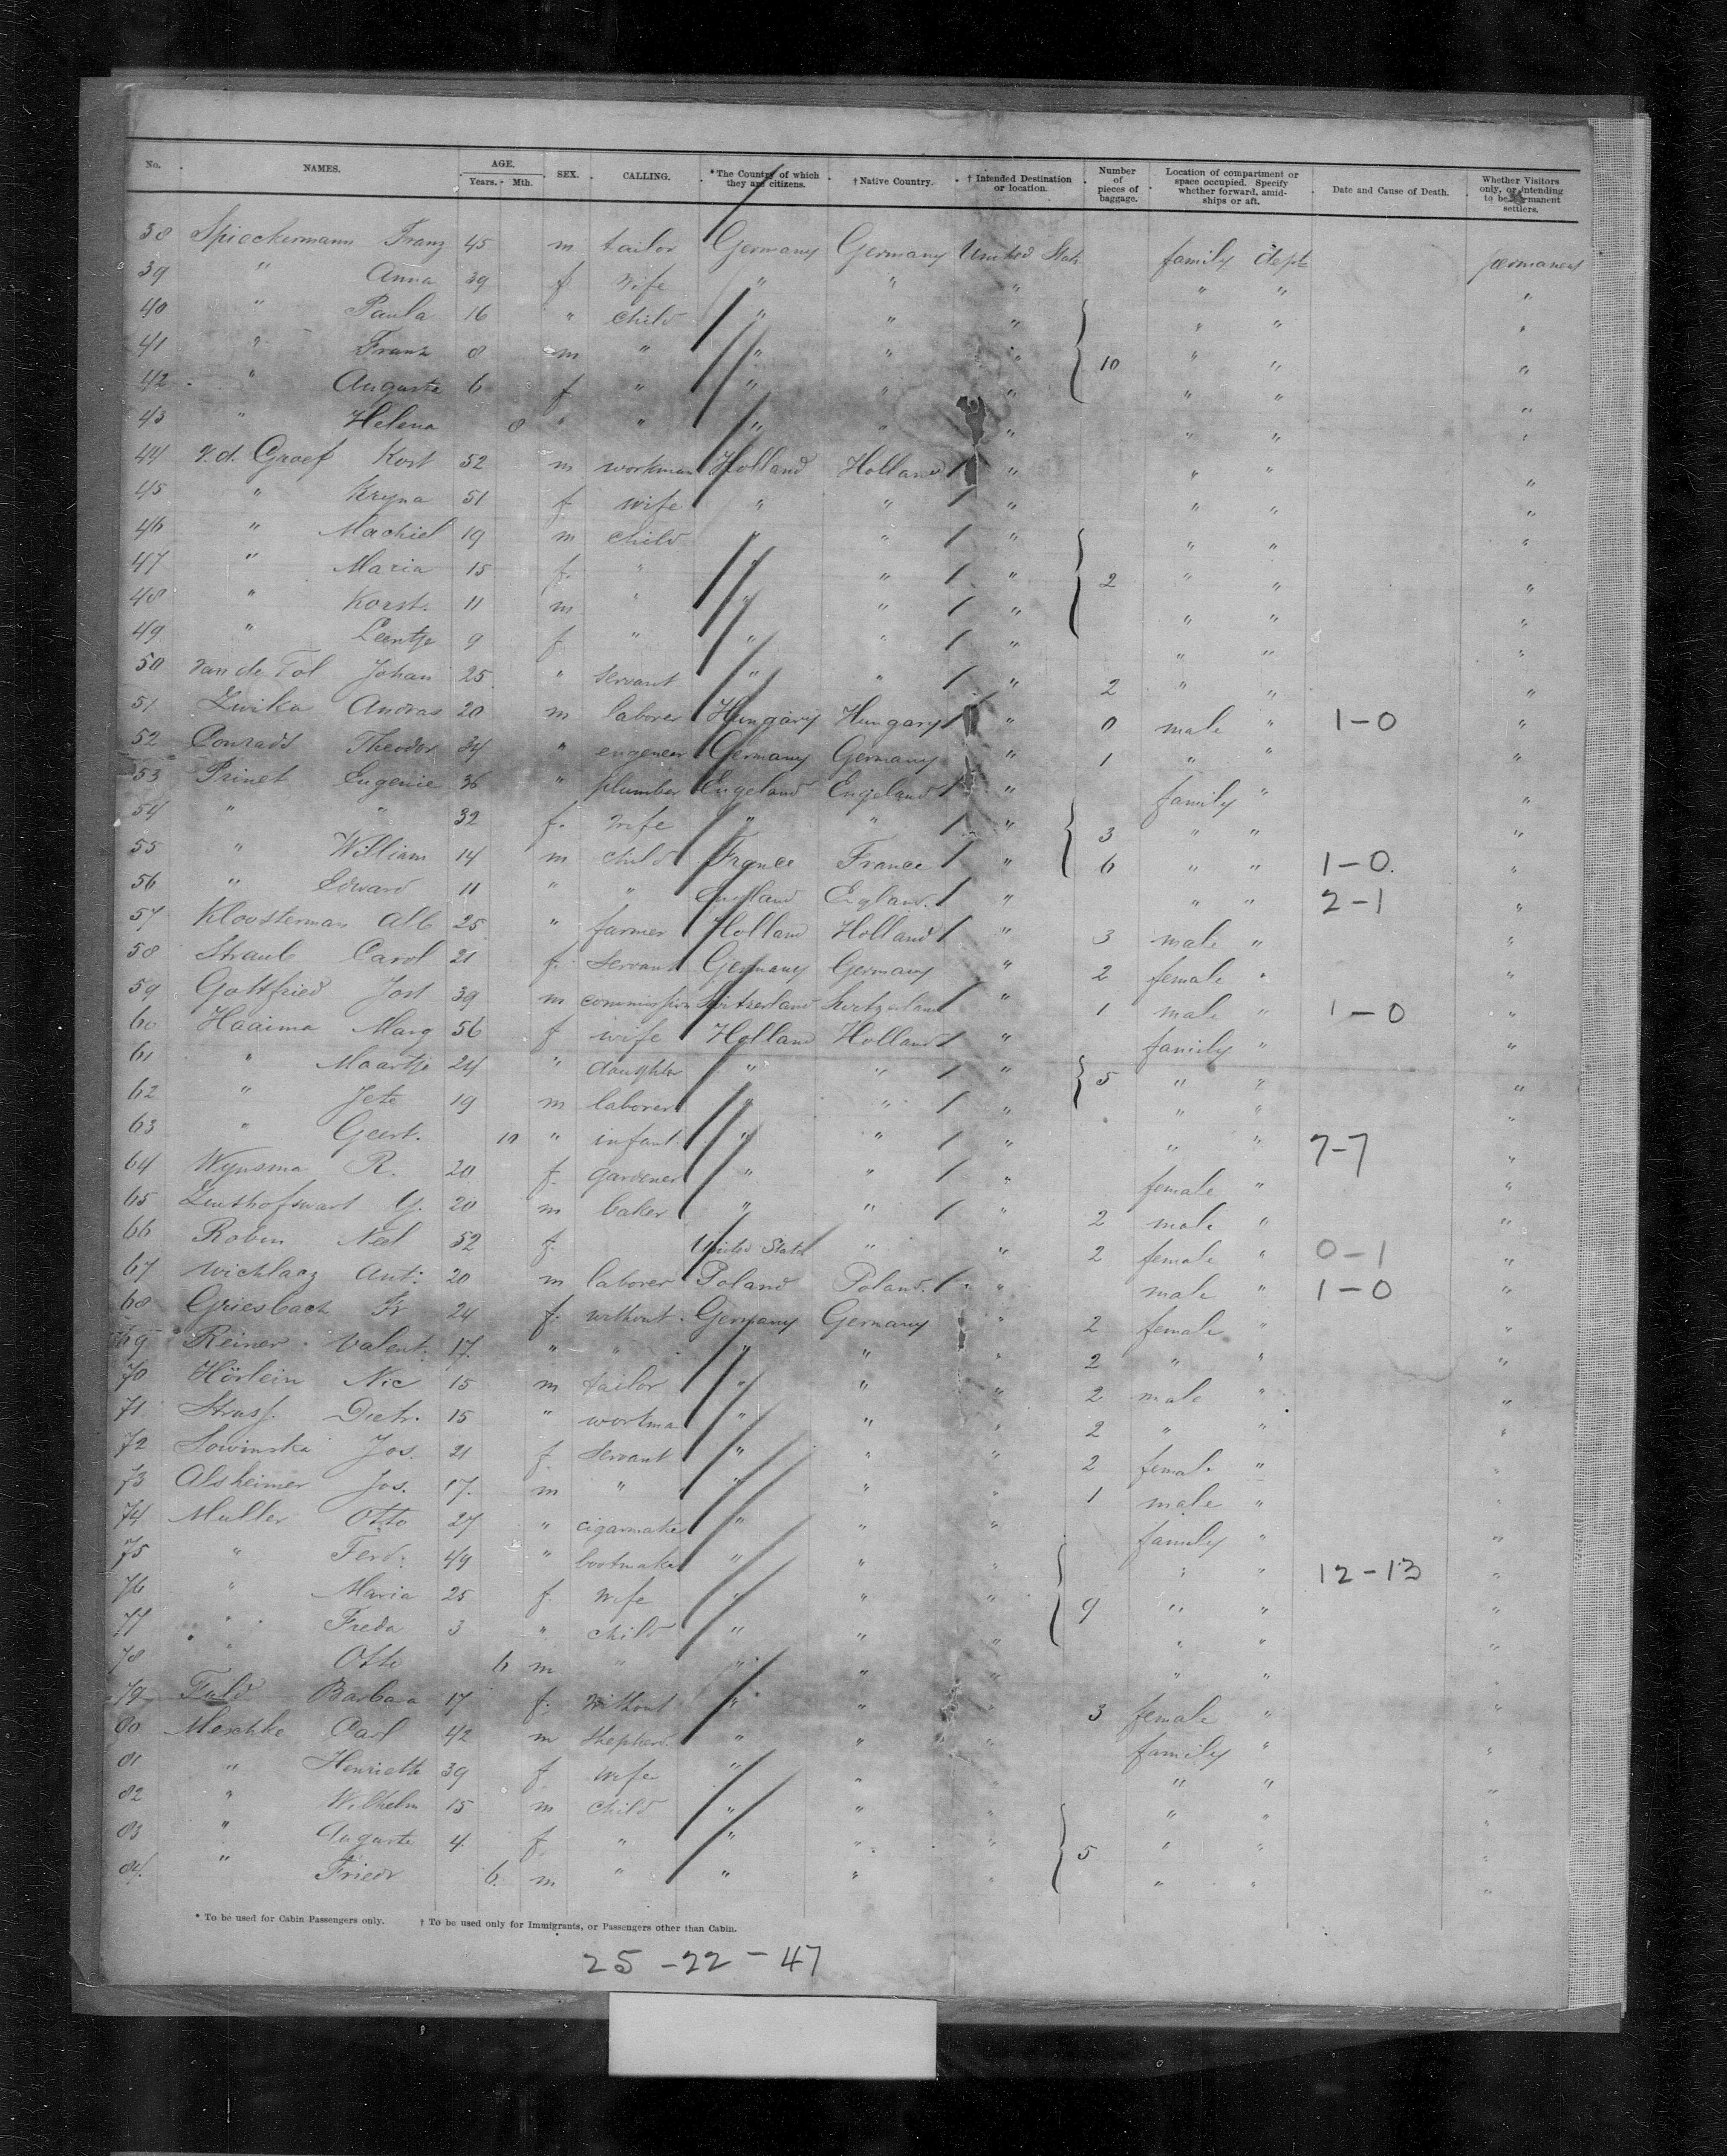 No. NAMES. AGE. Years. Mth. SEX. CALLING. *The Country of which they are citizens. †Native Country. †Intended Destination or location. Number of pieces of baggage. Location of compartment or space occupied. Specify whether forward, amidships or aft. Date and Cause of Death. Whether Visitors only, or intending to be permanent settlers.
38 Spieckermann Franz 45 m tailor Germany Germany United Stat family dept permanent
39 " Anna 39 f wife " " " " " "
40 " Paula 16 " child " " " " " "
41 " Franz 8 m " " " " 10 " " "
42 " Auguste 6 f " " " " " " "
43 " Helena 8 " " " " " " " "
44 v.d. Groef Kort 52 m workman Holland Holland " " " "
45 " Kryna 51 f wife " " " " " "
46 " Machiel 19 m child " " " " " "
47 " Maria 15 f. " " " " 2 " " "
48 " Korst. 11 m " " " " " " "
49 " Leentje 9 f " " " " " " "
50 van de Tol Johan 25 " servant " " " 2 " " "
51 Zivika Andras 20 m laborer Hungary Hungary " 0 male " 1-0 "
52 Conrads Theodor 34 " engeneer Germany Germany " 1 " " "
53 Prinet Eugenie 36 " plumber Engeland Engeland " family " "
54 " " 32 f. wife " " " 3 " " "
55 " William 14 m child France France " 6 " " 1-0. "
56 " Edward 11 " " England England. " " " 2-1 "
57 Kloosterman Alb 25 " farmer Holland Holland " 3 male " "
58 Straub Carol 21 f. servant Germany Germany " 2 female " "
59 Gottfried Jost 39 m commission Switzerland Switzerland " 1 male " 1-0 "
60 Haaima Marg 56 f wife Holland Holland " family " "
61 " Maartje 24 " daughter " " " 5 " " "
62 " Jete 19 m laborer " " " " " "
63 " Geert. 10 " infant " " " " " 7-7 "
64 Wynsma R. 20 f. gardener " " " female " "
65 G. 20 m baker " " " 2 male " "
66 Robin Neel 52 f. United State " " 2 female " 0-1 "
67 Wichlacz Ant: 20 m laborer Poland Poland. " male " 1-0 "
68 Griesbach Fr 24 f. without Germany Germany " 2 female " "
69 Reiner Valent: 17. " " " " " 2 " " "
70 Hörlein Nic 15 m tailor " " " 2 male " "
71 Strass. Dietr. 15 " workma " " " 2 " " "
72 Sowinska Jos. 21 f. servant " " " 2 female " "
73 Alsheimer Jos. 17. m " " " " 1 male " "
74 Muller Otto 27 " cigarmaker " " " family " "
75 " Ferd: 49 " bootmaker " " " " " 12-13 "
76 " Maria 25 f. wife " " " 9 " " "
77 " Freda 3 " child " " " " " "
78 " Otto 6 m " " " " " " "
79 Fuld Barbaa 17 f. without " " " 3 female " "
80 Meschke Carl 42 m shepherd " " " family " "
81 " Henriette 39 f. wife " " " " " "
82 " Wilhelm 15 m child " " " " " "
83 " Auguste 4. f. " " " " 5 " " "
84. " Friedr 6. m " " " " " " "
* To be used for Cabin Passengers only. † To be used only for Immigrants, or Passengers other than Cabin.
25-22-47